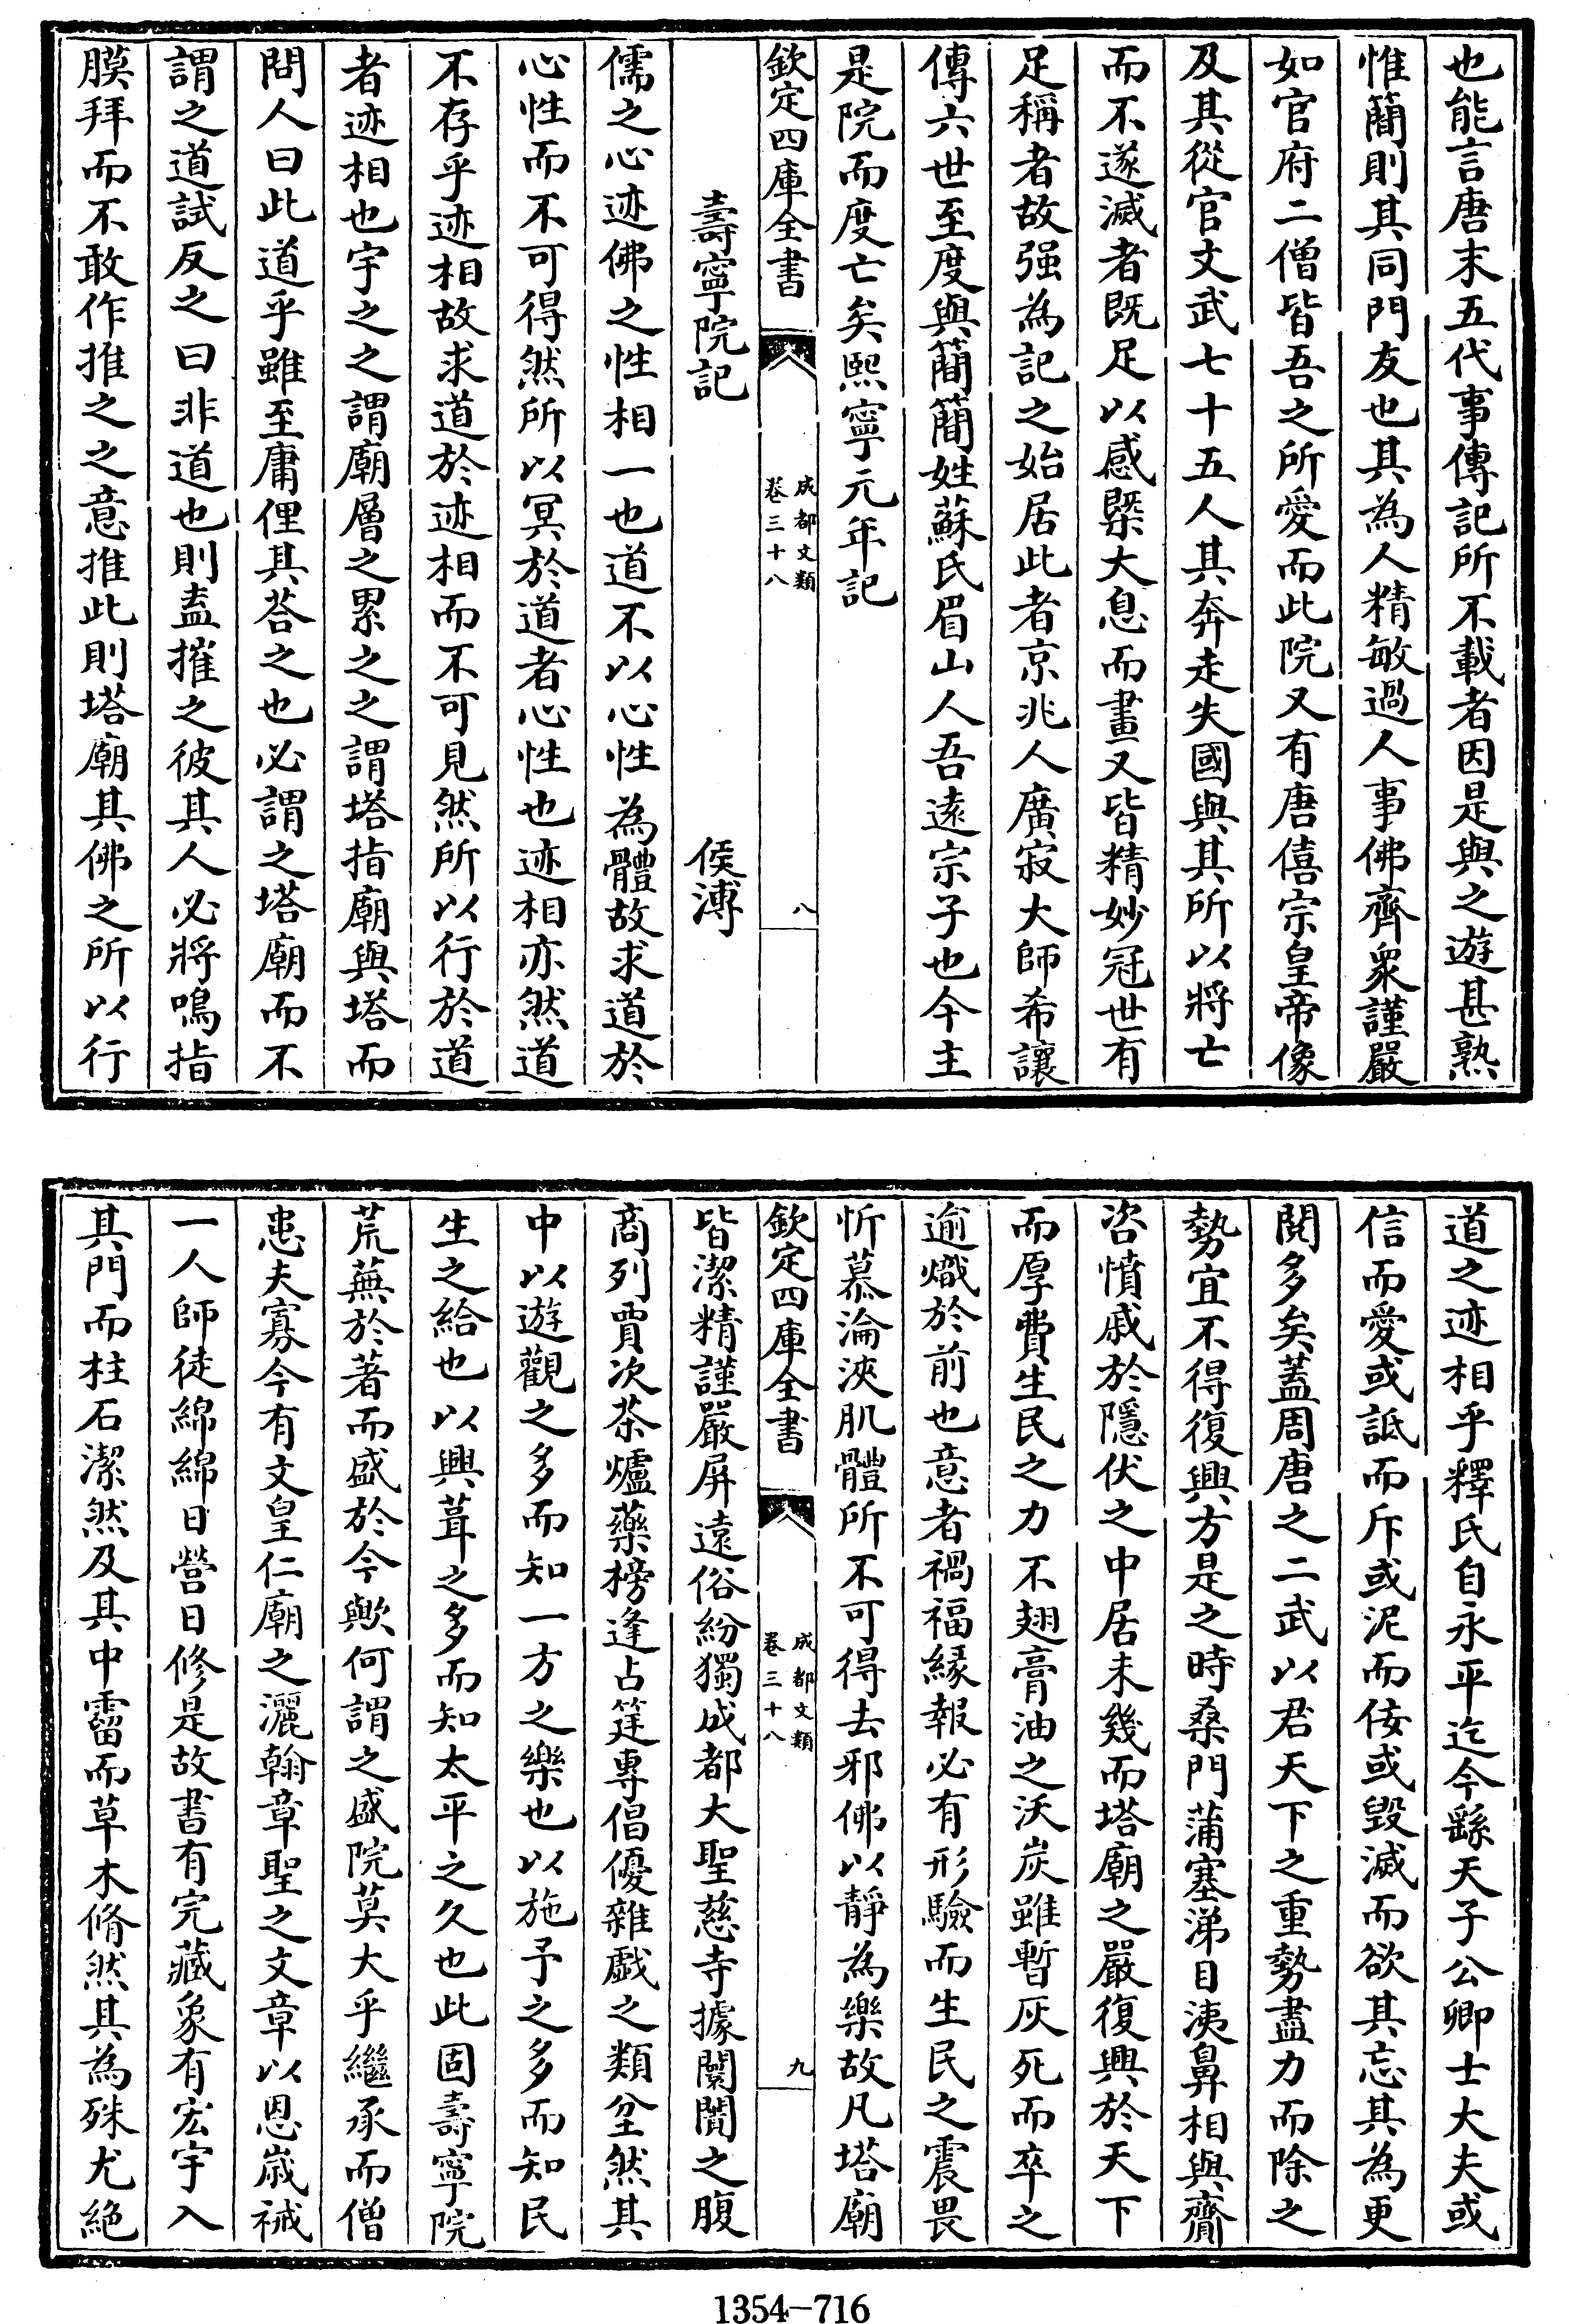 也能言唐末五代事傳記所不載者因是與之遊甚熟
惟簡則其同門友也其為人精敏過人事佛齊衆謹嚴
如官府二僧皆吾之所愛而此院又有唐僖宗皇帝像
及其從官文武七十五人其奔走失國與其所以將亡
而不遂滅者既足以感槩大息而畫又皆精妙冠世有
足稱者故强為記之始居此者京兆人廣寂大師希讓
傳六世至度與簡簡姓蘇氏眉山人吾遠宗子也今主
是院而度亡矣熙寧元年記
欽定四庫全書
成都文類
卷三十八
八
壽寧院記 侯溥
儒之心迹佛之性相一也道不以心性為體故求道於
心性而不可得然所以冥於道者心性也迹相亦然道
不存乎迹相故求道於迹相而不可見然所以行於道
者迹相也宇之之謂廟層之累之之謂塔指廟與塔而
問人曰此道乎雖至庸俚其荅之也必謂之塔廟而不
謂之道試反之曰非道也則盍摧之彼其人必將鳴指
膜拜而不敢作推之之意推此則塔廟其佛之所以行
道之迹相乎釋氏自永平迄今繇天子公卿士大夫或
信而愛或詆而斥或泥而佞或毀滅而欲其忘其為更
閱多矣蓋周唐之二武以君天下之重勢盡力而除之
勢宜不得復興方是之時桑門蒲塞涕目洟鼻相與齎
咨憤戚於隱伏之中居未幾而塔廟之嚴復興於天下
而厚費生民之力不翅膏油之沃炭雖暫灰死而卒之
逾熾於前也意者禍福緣報必有形驗而生民之震畏
忻慕淪浹肌體所不可得去邪佛以靜為樂故凡塔廟
欽定四庫全書
成都文類
卷三十八
九
皆潔精謹嚴屏遠俗紛獨成都大聖慈寺據闤闠之腹
商列賈次茶爐藥榜逢占筳專倡優雜戲之類坌然其
中以遊觀之多而知一方之樂也以施予之多而知民
生之給也以興葺之多而知太平之久也此固壽寧院
荒蕪於著而盛於今歟何謂之盛院莫大乎繼承而僧
患夫寡今有文皇仁廟之灑翰章聖之文章以恩歲祴
一人師徒綿綿日營日修是故書有完藏象有宏宇入
其門而柱石潔然及其中霤而草木脩然其為殊尤絶
1354—716